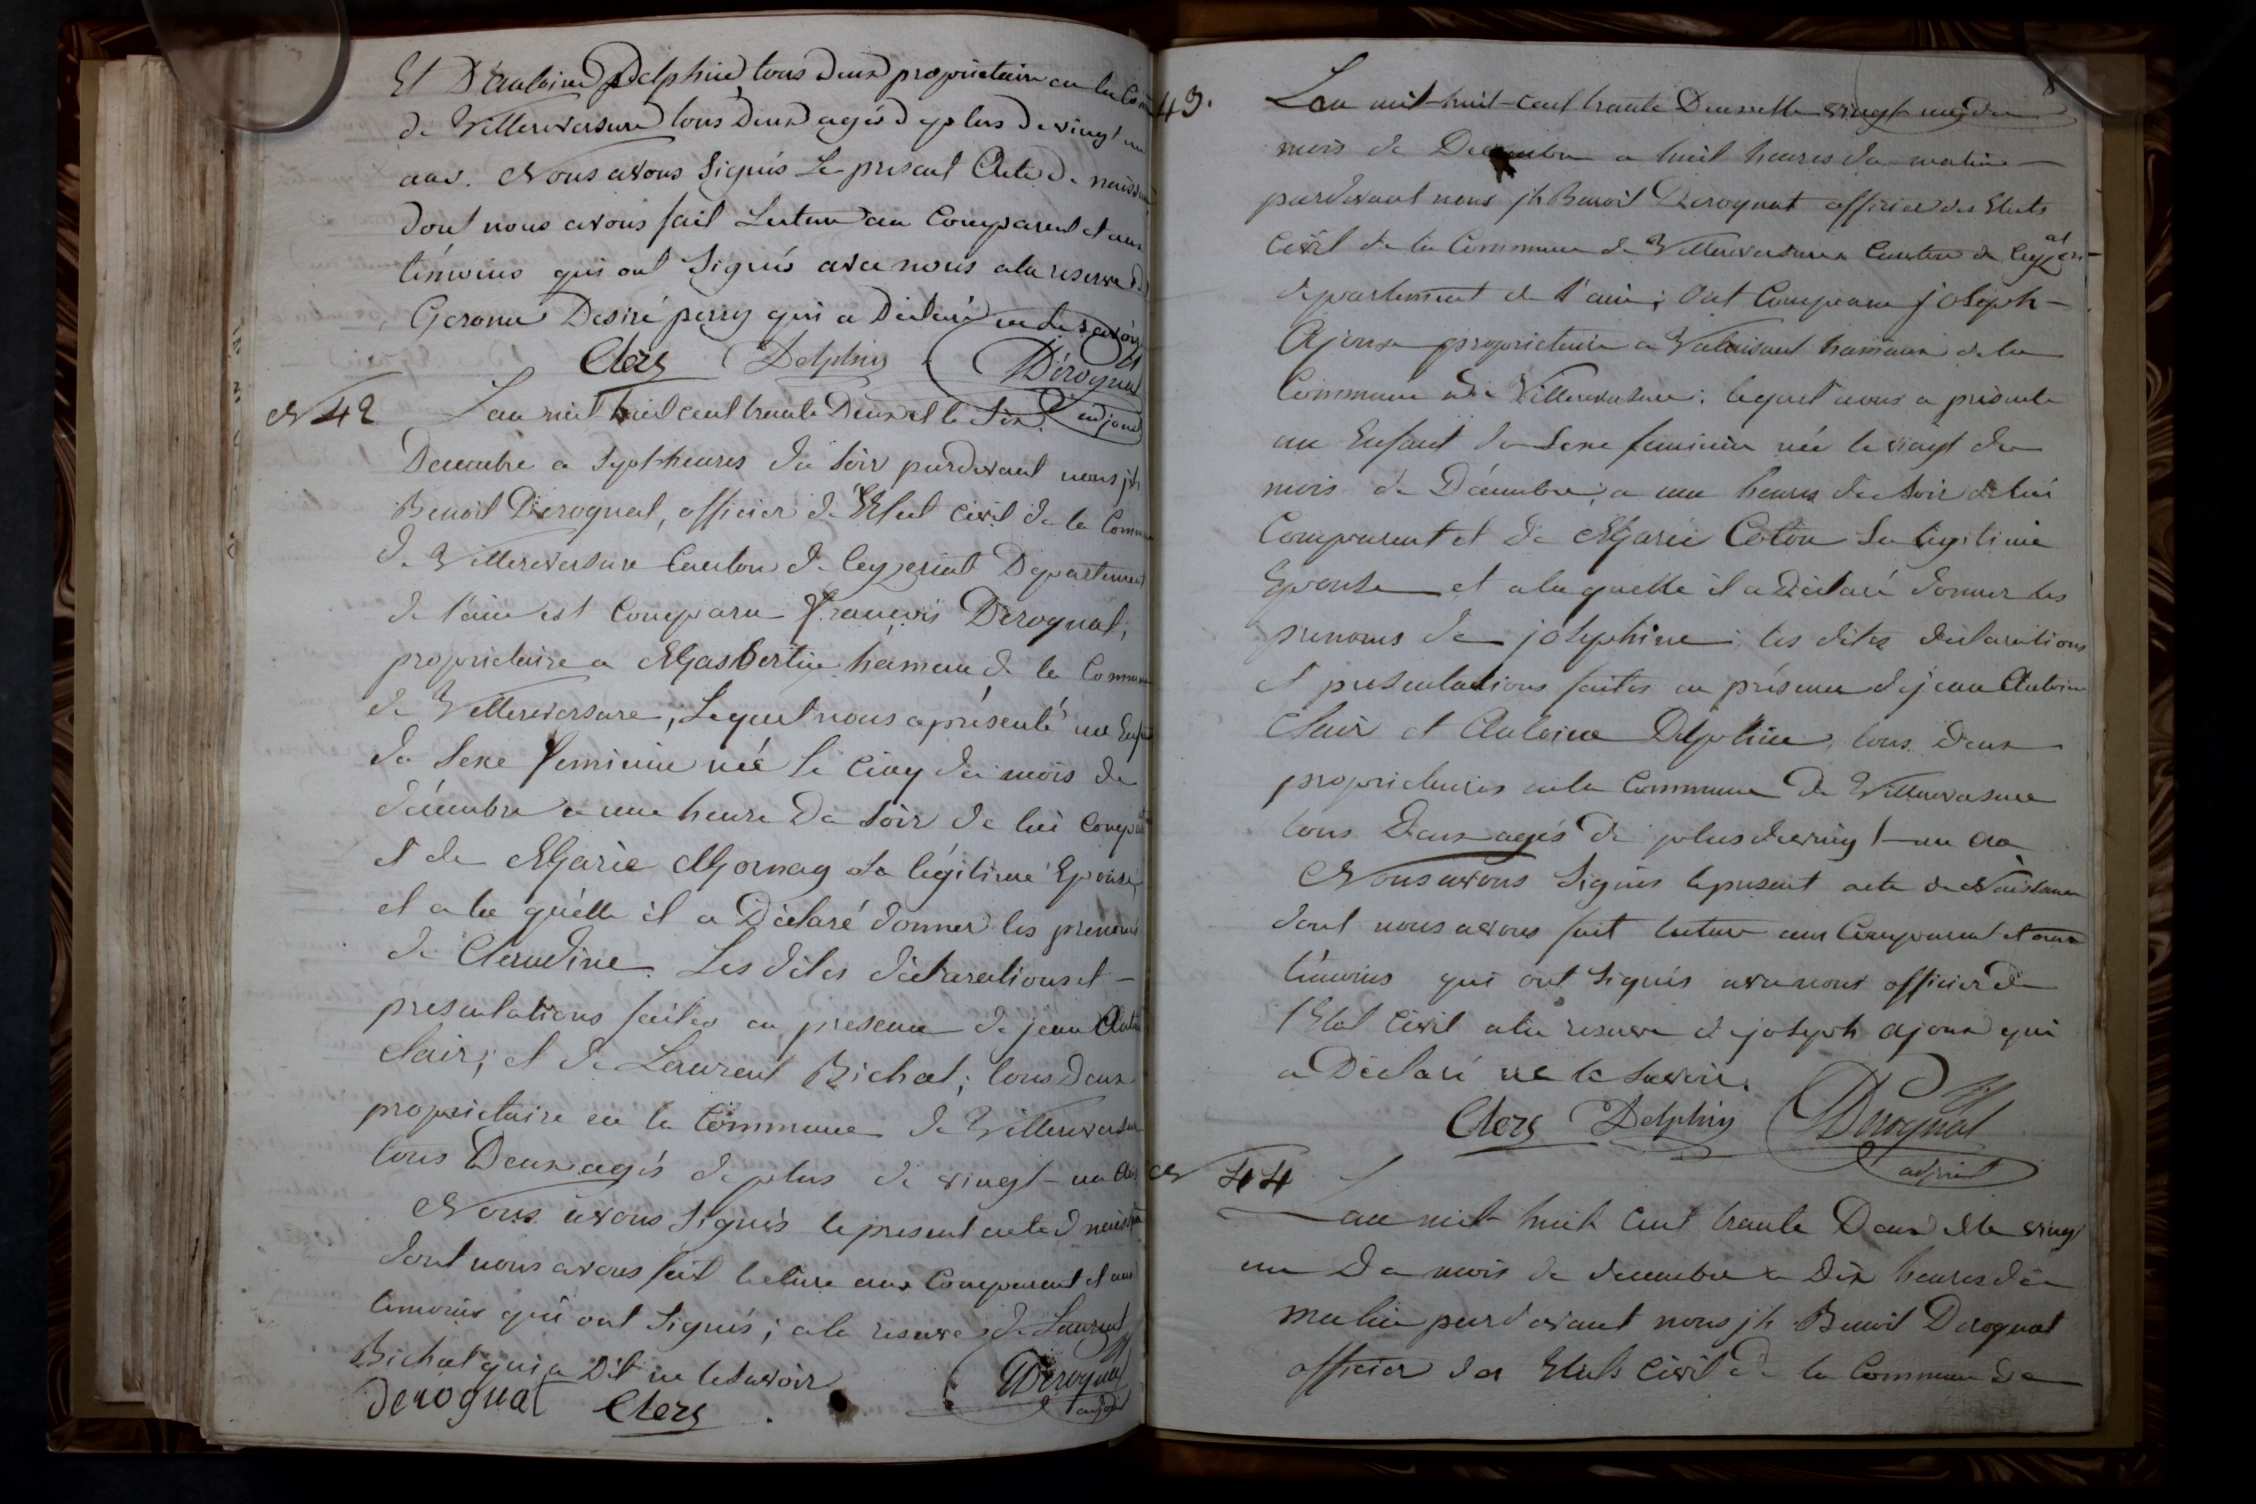 Et D'antoine Delphin, tous deux proprietaire en la Com
de Villereversure tous deux agés de plus de vingt un
ans. Nous avons Signés Le present Acte de naiss
dont nous avons fait Lecture au Comparent et aux
témoins qui ont Signés avec nous a la reserve de
Gerome Desiré perry qui a Déclaré ne le savoir
Clerg Delphin Dérognat
adjoint
N 42 L'an mil huit cent trente Deux et le Six
Decembre a Sept heures du Soir pardevant nous jh
Benoit Derognat, officier de l'Etat civil de la Comm
de Villereversure Canton de Ceyzeriat Departement
de l'ain est Comparu françois Derognat,
proprietaire a Masbertin hameau de la Commu
de Villereversure, Lequel nous a présenté un Enf
du Sexe feminin née le Cinq du mois de
décembre a une heure du Soir de lui Compa
et de Marie Mornay Sa légitime Epouse,
et a la quelle il a Déclaré donner les prenoms
de Claudine. Les dites déclarations et -
presentations faites en presence de jean Antoi
Clair; et de Laurent Bichat; tous Deux
proprietaire en la Commune de Villereversur
tous Deux agés de plus de vingt-un ans
Nous avons Signés le present acte de naiss
dont nous avons fait lecture aux Comparent et aux
temoins qui ont Signés; a la reserve de Laurent
Bichat qui a Dit ne le savoir
derognat Clerg Derognat
adjoint
8
43. L'an mil-huit-cent trente Deux et le vingt un du
mois de Decembre a huit heures du matin -
pardevant nous jh Benoit Derognat officier des Etats
Civil de la Commune de Villereversure Canton de Ceyzeri-
at
departement de l'ain; Est Comparu joseph -
Ajoux proprietaire a Valuisant hameau de la
Commune de Villereversure; lequel nous a présenté
un Enfant du Sexe feminin née le vingt du
mois de Décembre, a une heures du Soir de lui
Comparent et de Marie Coton Sa légitime
Epouse et a la quelle il a Déclaré donner les
prenoms de josephine; les dites déclarations
et presentations faites en présence de jean Antoine
Clair et Antoine Delphin, tous deux
proprietaires en la Commune de Villereversure
tous Deux agés de plus de vingt-un ans
Nous avons Signés le present acte de Naissance
dont nous avons fait lecture aux Comparent et aux
témoins qui ont Signés avec nous officier de
l'Etat Civil a la reserve de joseph ajoux qui
a Déclaré ne le Savoir.
Clerg Delphin Derognat
adjoint
N 44 L'an mil huit Cent trente Deux et le vingt
un du mois de decembre a Dix heures du
matin pardevant nous jh Benoit Derognat
officier des Etats Civil de la Commune de